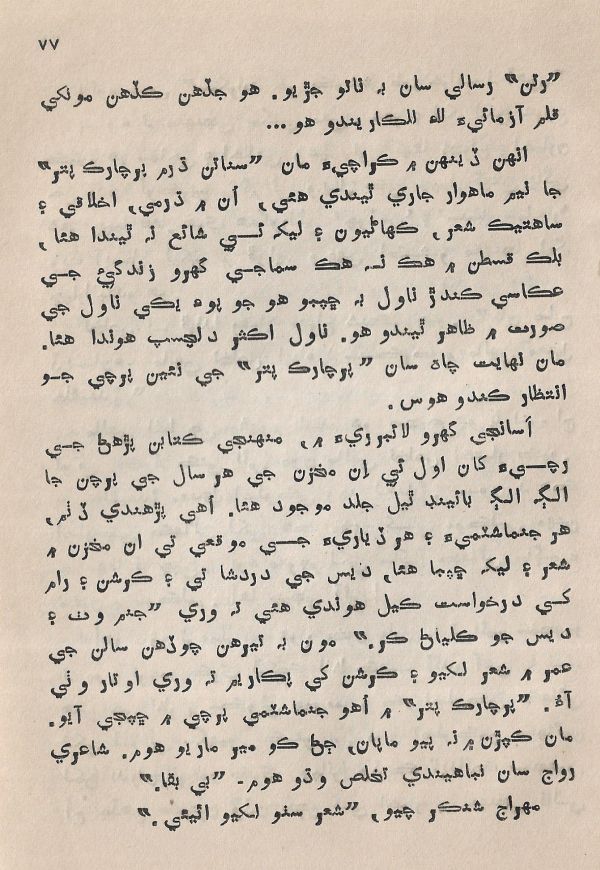 ٧٧
”رتن“ رسالي سان به ناتو جڙيو. هو جڏهن ڪڏهن مونکي
قلم آزمائيءَ لاءِ للڪاريندو هو...
انهن ڏينهن ۾ ڪراچيءَ مان ”سناتن ڌرم پرچارڪ پتر“
جا نيم ماهوار جاري ٿيندي هئي، اُن ۾ ڌرمي، اخلاقي ۽
ساهتيڪ شعر، ڪهاڻيون ۽ ليک تہ ئي شايع نہ ٿيندا هئا،
بلڪ قسطن ۾ هڪ نہ هڪ سماجي گهرو زندگيءَ جي
عڪاسي ڪندڙ ناول به ڇپبو هو جو پوءِ يڪي ناول جي
صورت ۾ ظاهر ٿيندو هو. ناول اڪثر دلچسپ هوندا هئا.
مان نهايت چاهه سان ”پرچارڪ پتر“ جي نئين پرچي جو
انتظار ڪندو هوس.
اُسانجي گهرو لائبرريءَ ۾، منهنجي ڪتابن پڙهڻ جي
رچيءَ کان اول ئي اِن مخزن جي هر سال جي پرچن جا
الڳ الڳ بائينڊ ٿيل جلد موجود هئا. اُهي پڙهندي ڏٺم،
هر جنماشٽميءَ ۽ هر ڏياريءَ جي موقعي تي ان مخزن ۾
شعر ۽ ليک ڇپيا هئا، ديس جي دردشا تي ۽ ڪرشن ۽ رام
کي درخواست ڪيل هوندي هئي تہ وري ”جنم وٺ ۽
ديس جو ڪلياڻ ڪر.“ مون به تيرهن چوڏهن سالن جي
عمر ۾ شعر لکيو ۽ ڪرشن کي پڪاريم تہ وري اوتار وٺي
آءُ. ”پرچارڪ پتر“ ۾ اُهو جنماشٽمي پرچي ۾ ڇپجي آيو.
مان ڪپڙن ۾ نہ پيو ماپان، ڄڻ ڪو مير ماريو هوم. شاعري
رواج سان نباهيندي تخلص وڌو هوم- ”بي بقا.“
مهراج شنڪر چيو، ”شعر سٺو لکيو اٿيئي.“